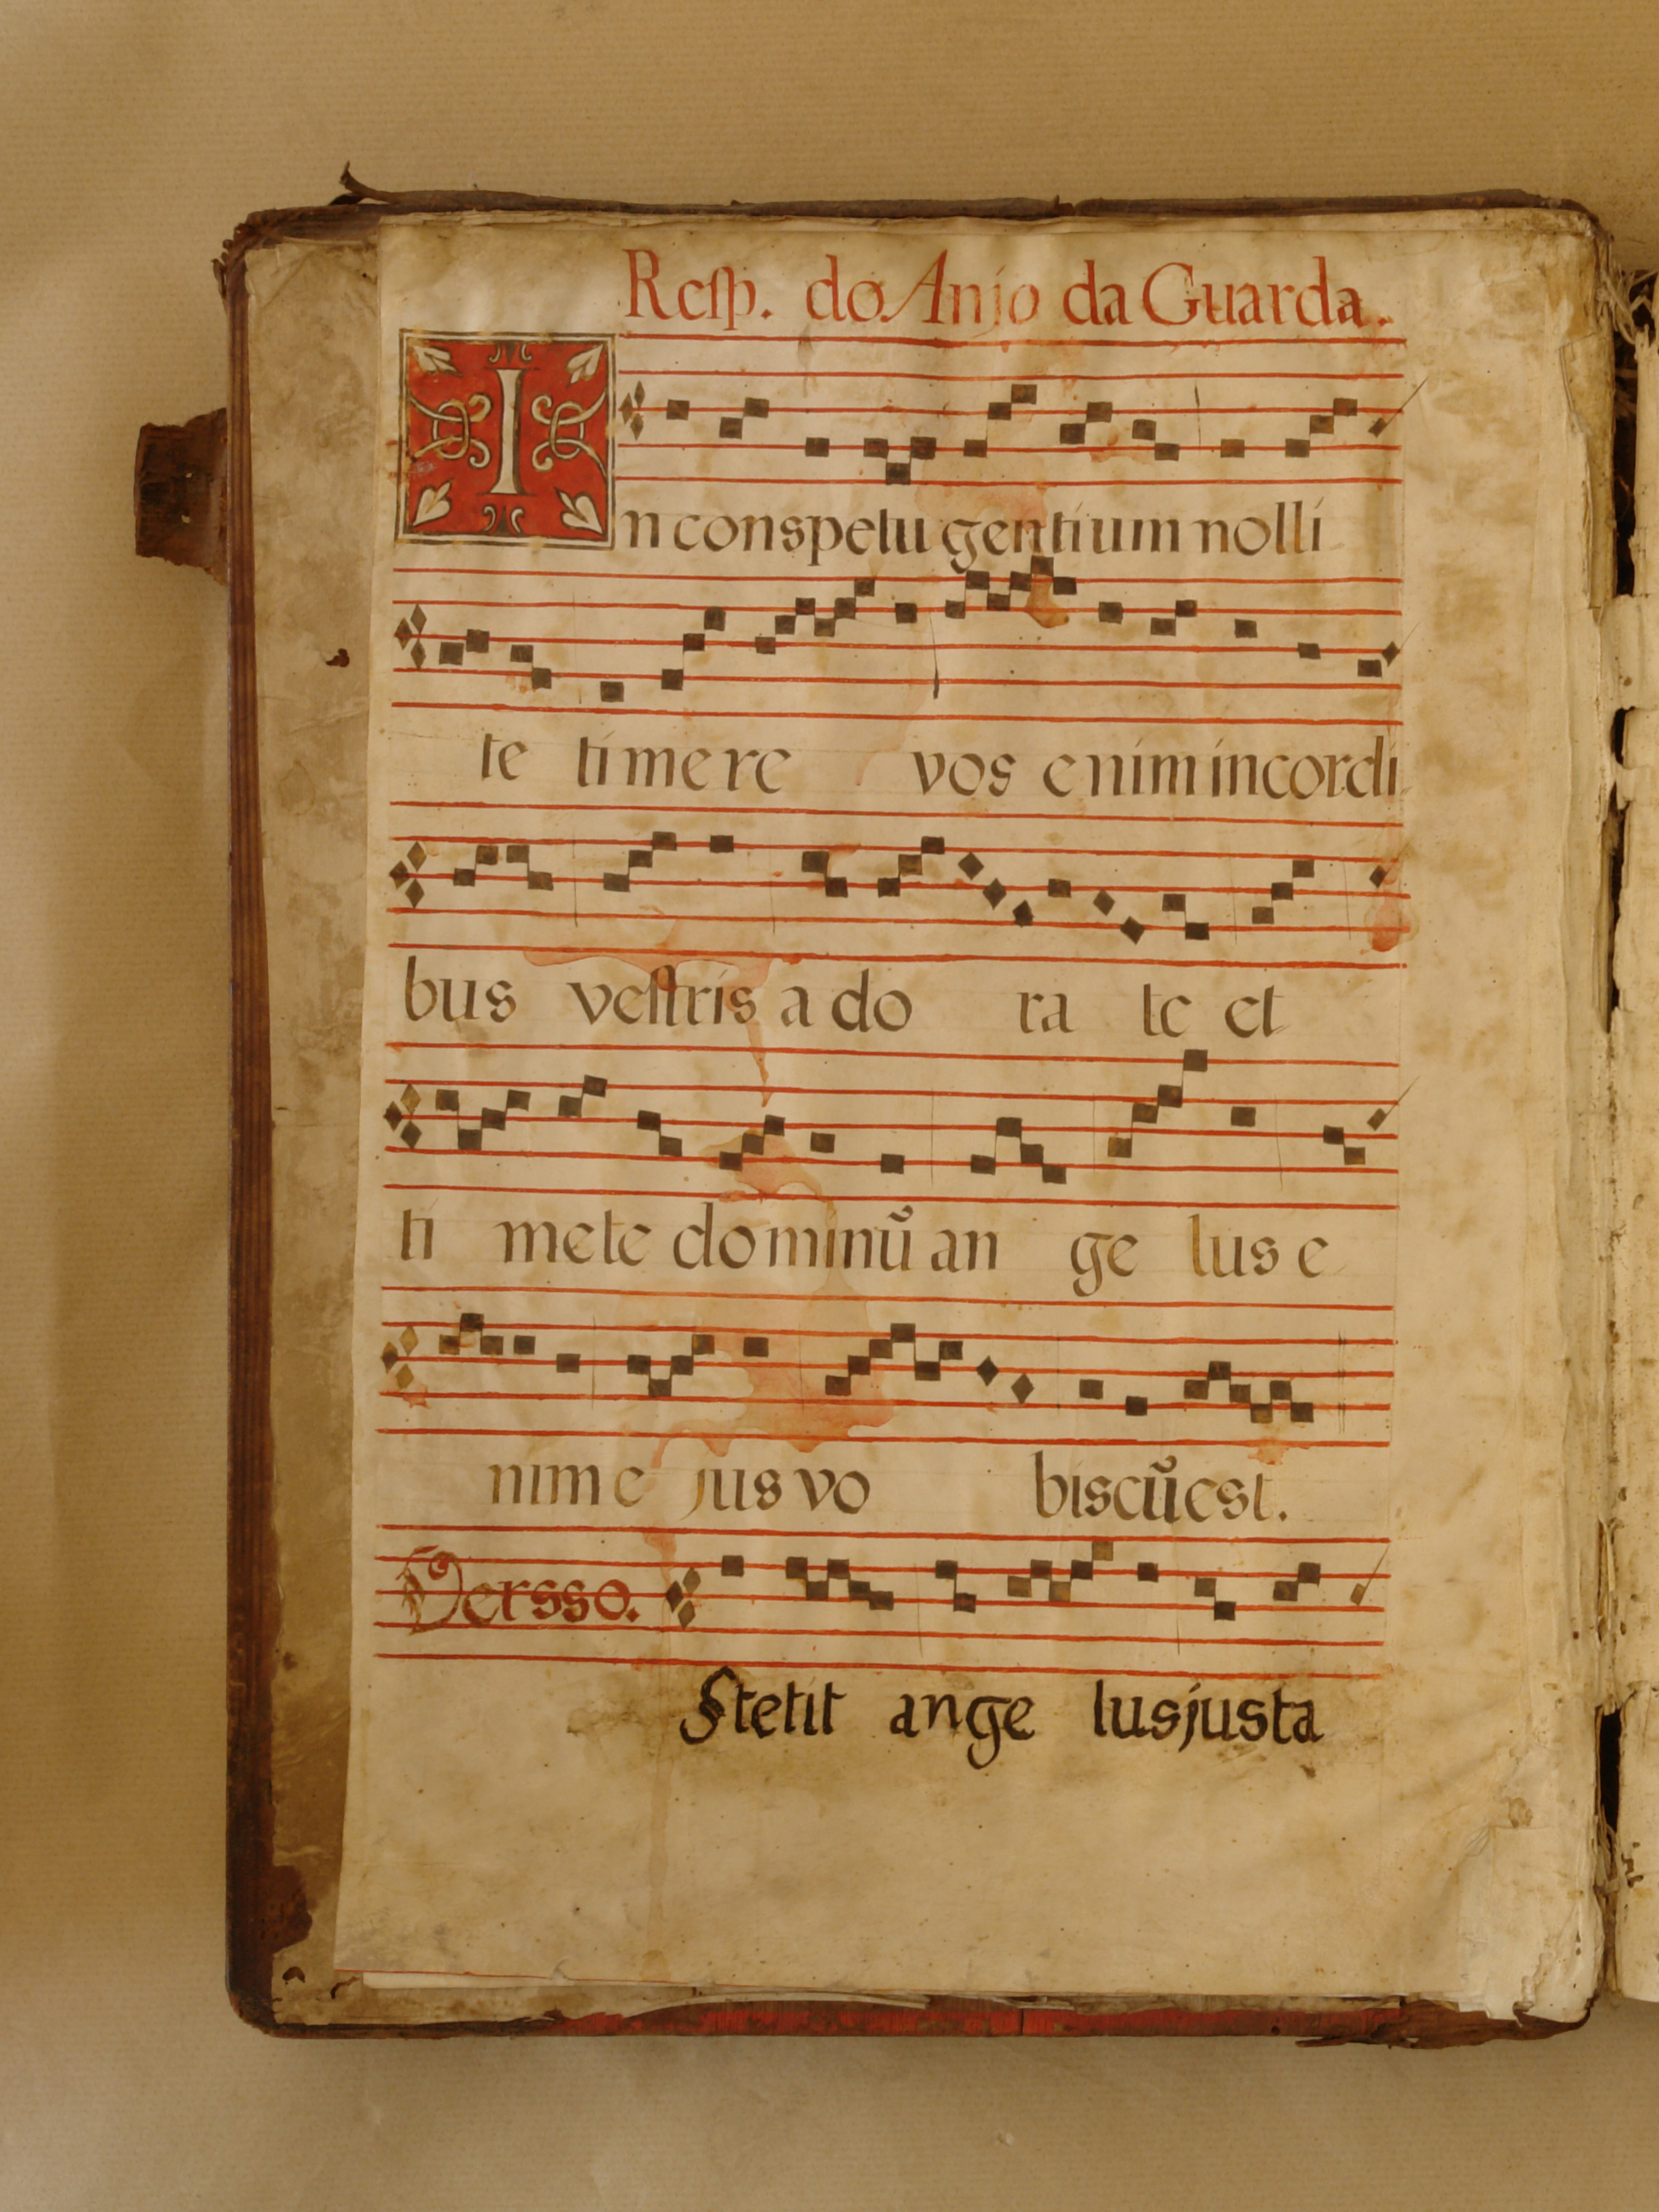 Resp. do Anjo da Guarda.
In conspetu gentium nolli
te timere vos enim in cordi
bus vestris a do ra te et
ti mete dominũ an ge lus e
nim e jus vo biscũ est.
Versso.
Stetit ange lus justa